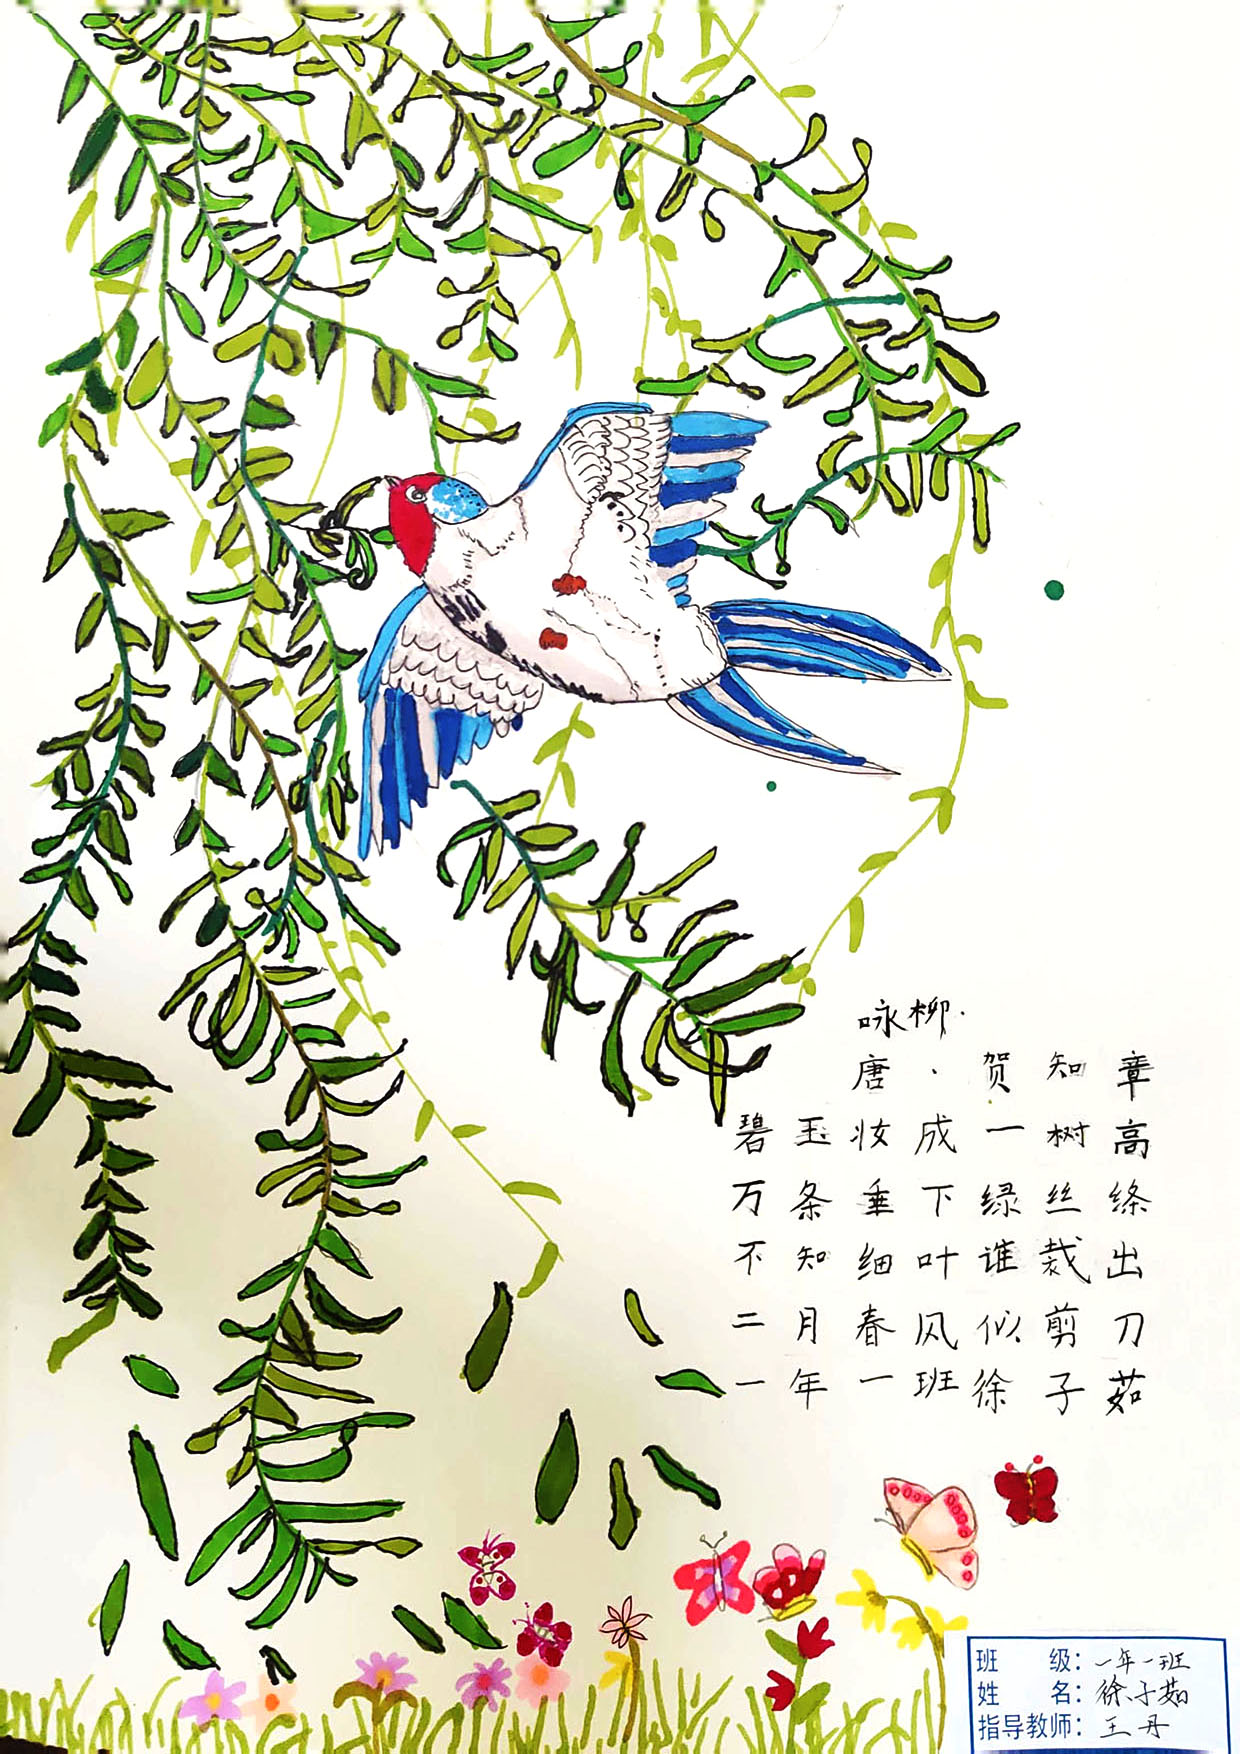 咏柳.
唐·贺知章
碧玉妆成一树高
万条垂下绿丝绦
不知细叶谁裁出
二月春风似剪刀
一年一班徐子茹
班 级：一年一班
姓 名：徐子茹
指导教师：王丹